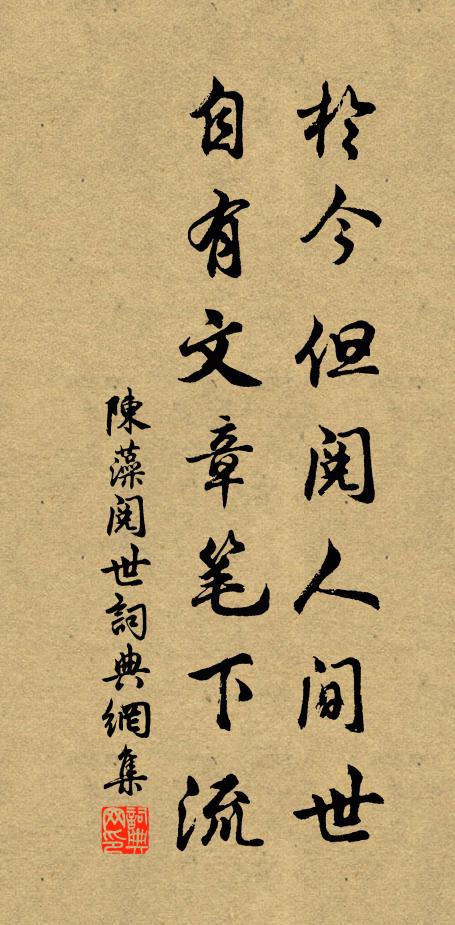 於今但阅人间世
自有文章笔下流
陳藻阅世詞典網集
詞典网印